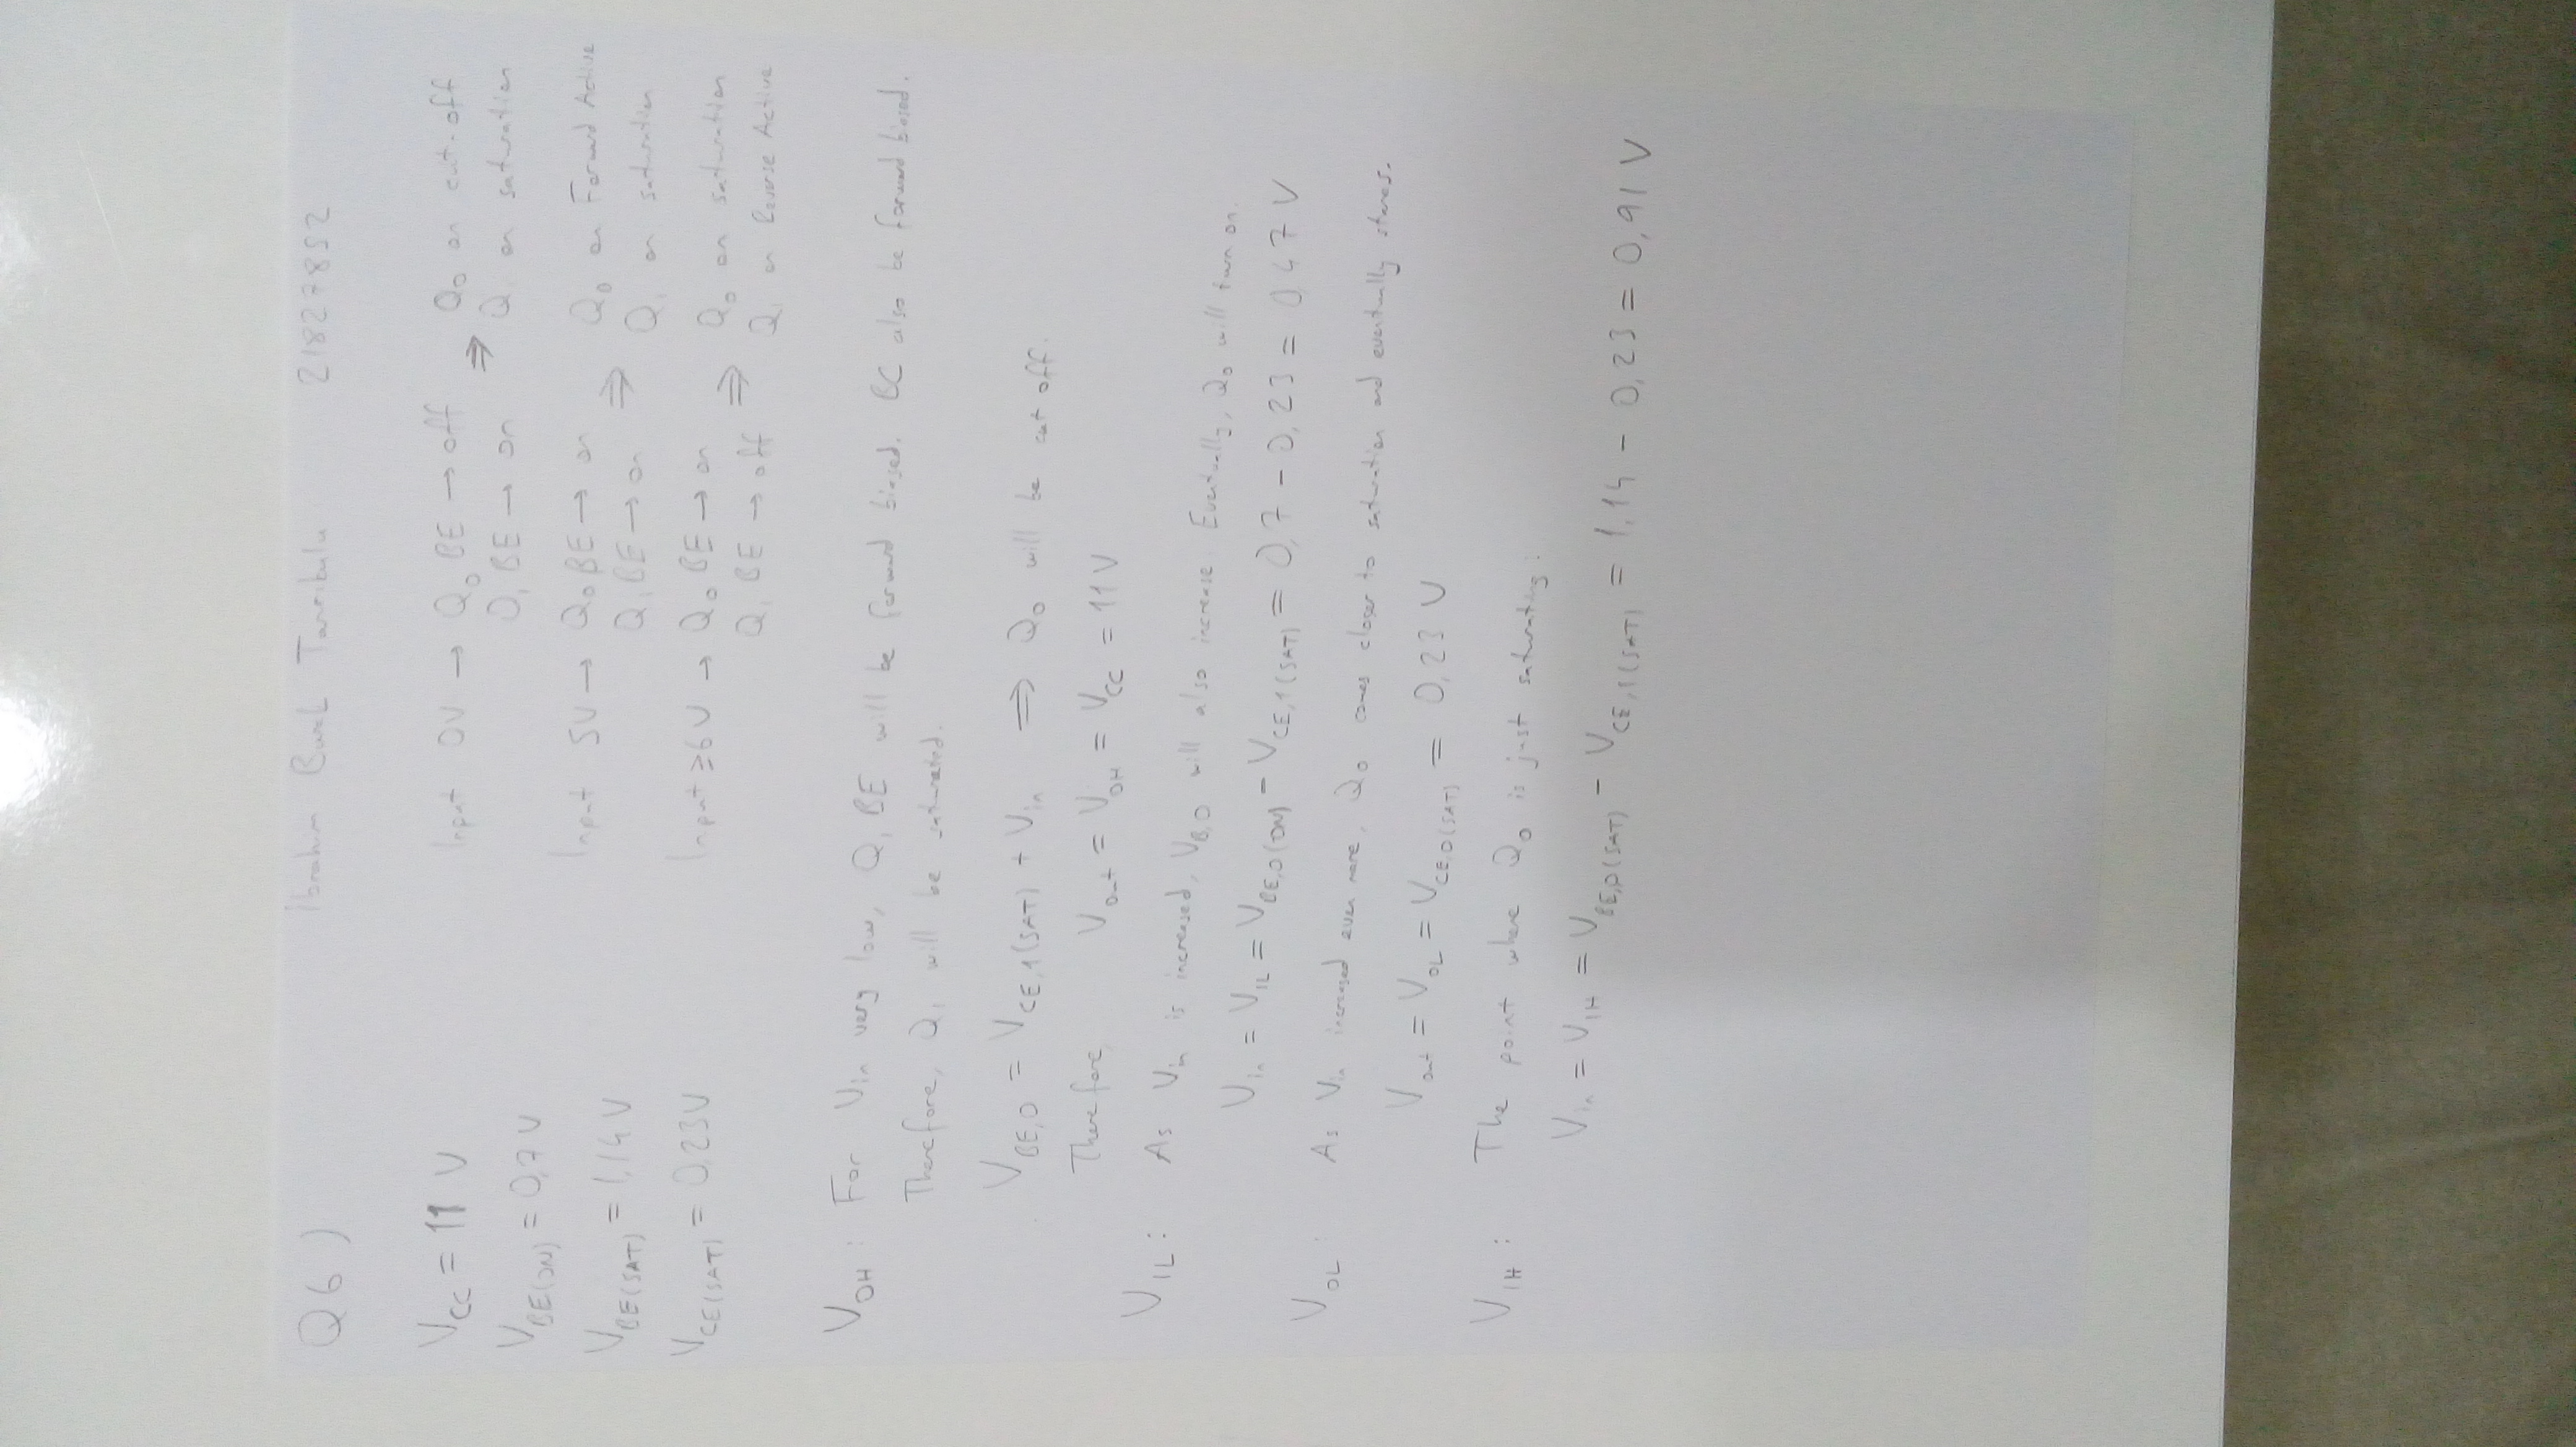 Q6) Ibrahim Burak Tanrıkulu 21827852
V_CC = 11 V
V_BE(ON) = 0,7 V
V_BE(SAT) = 1,14 V
V_CE(SAT) = 0,23V
Input 0V → Q_0 BE → off ⇒ Q_0 on cut-off
Q_1 BE → on Q_1 on saturation
Input 5V → Q_0 BE → on ⇒ Q_0 on Forward Active
Q_1 BE → on Q_1 on saturation
Input ≥6V → Q_0 BE → on ⇒ Q_0 on saturation
Q_1 BE → off Q_1 on Reverse Active
V_OH : For V_in very low, Q_1 BE will be forward biased. BC also be forward biased.
Therefore, Q_1 will be saturated.
V_BE,0 = V_CE,1(SAT) + V_in ⇒ Q_0 will be cut off.
Therefore, V_out = V_OH = V_CC = 11V
V_IL : As V_in is increased, V_B,0 will also increase Eventually, Q_0 will turn on.
V_in = V_IL = V_BE,0(ON) - V_CE,1(SAT) = 0,7 - 0,23 = 0,47 V
V_OL : As V_in increased even more, Q_0 comes closer to saturation and eventually
V_out = V_OL = V_CE,0(SAT) = 0,23 V
V_IH : The point where Q_0 is just saturating:
V_in = V_IH = V_BE,0(SAT) - V_CE,1(SAT) = 1,14 - 0,23 = 0,91 V